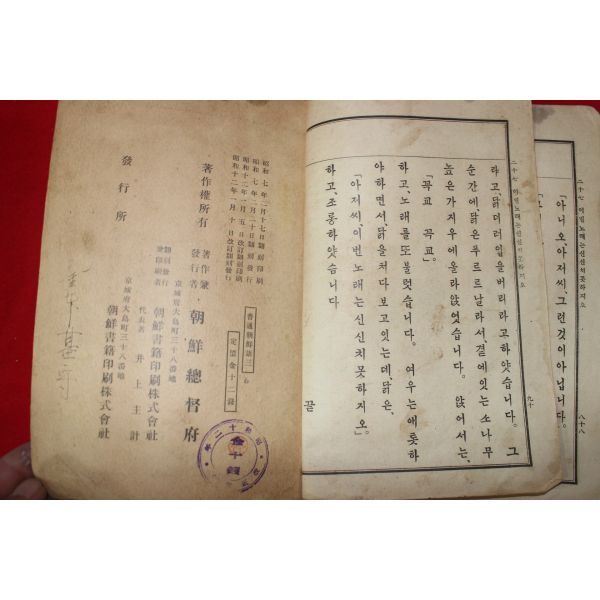 二十七 이번노래는신신치못하지요 八十八
「아니오,아저씨,그런것이아닙니다。
二十七 이번노래는신신치못하지요 九十
라고,닭더러입을버리라고하얏습니다。 그
순간에닭은푸르르날라서,겯에잇는소나무
높은가지우에올라앉엇습니다。 앉어서는、
「꼭교 꼭교」。
하고、노래를또불럿습니다。 여우는애롯하
야하면서、닭을처다보고잇는데、닭은、
「아저씨이번노래는신신치못하지오。」
하고、조롱하얏습니다 끝
昭和七年二月十七日飜刻印刷
昭和七年二月二十日飜刻發行
昭和十二年一月五日改訂飜刻印刷
昭和十二年一月十日改訂飜刻發行
普通朝鮮語三
定價金十二錢
著作權所有
著作兼發行者 朝鮮總督府
京城府大島町三十八番地
飜刻發行兼印刷者 朝鮮書籍印刷株式會社
代表者 井上主計
京城府大島町三十八番地
發行所 朝鮮書籍印刷株式會社